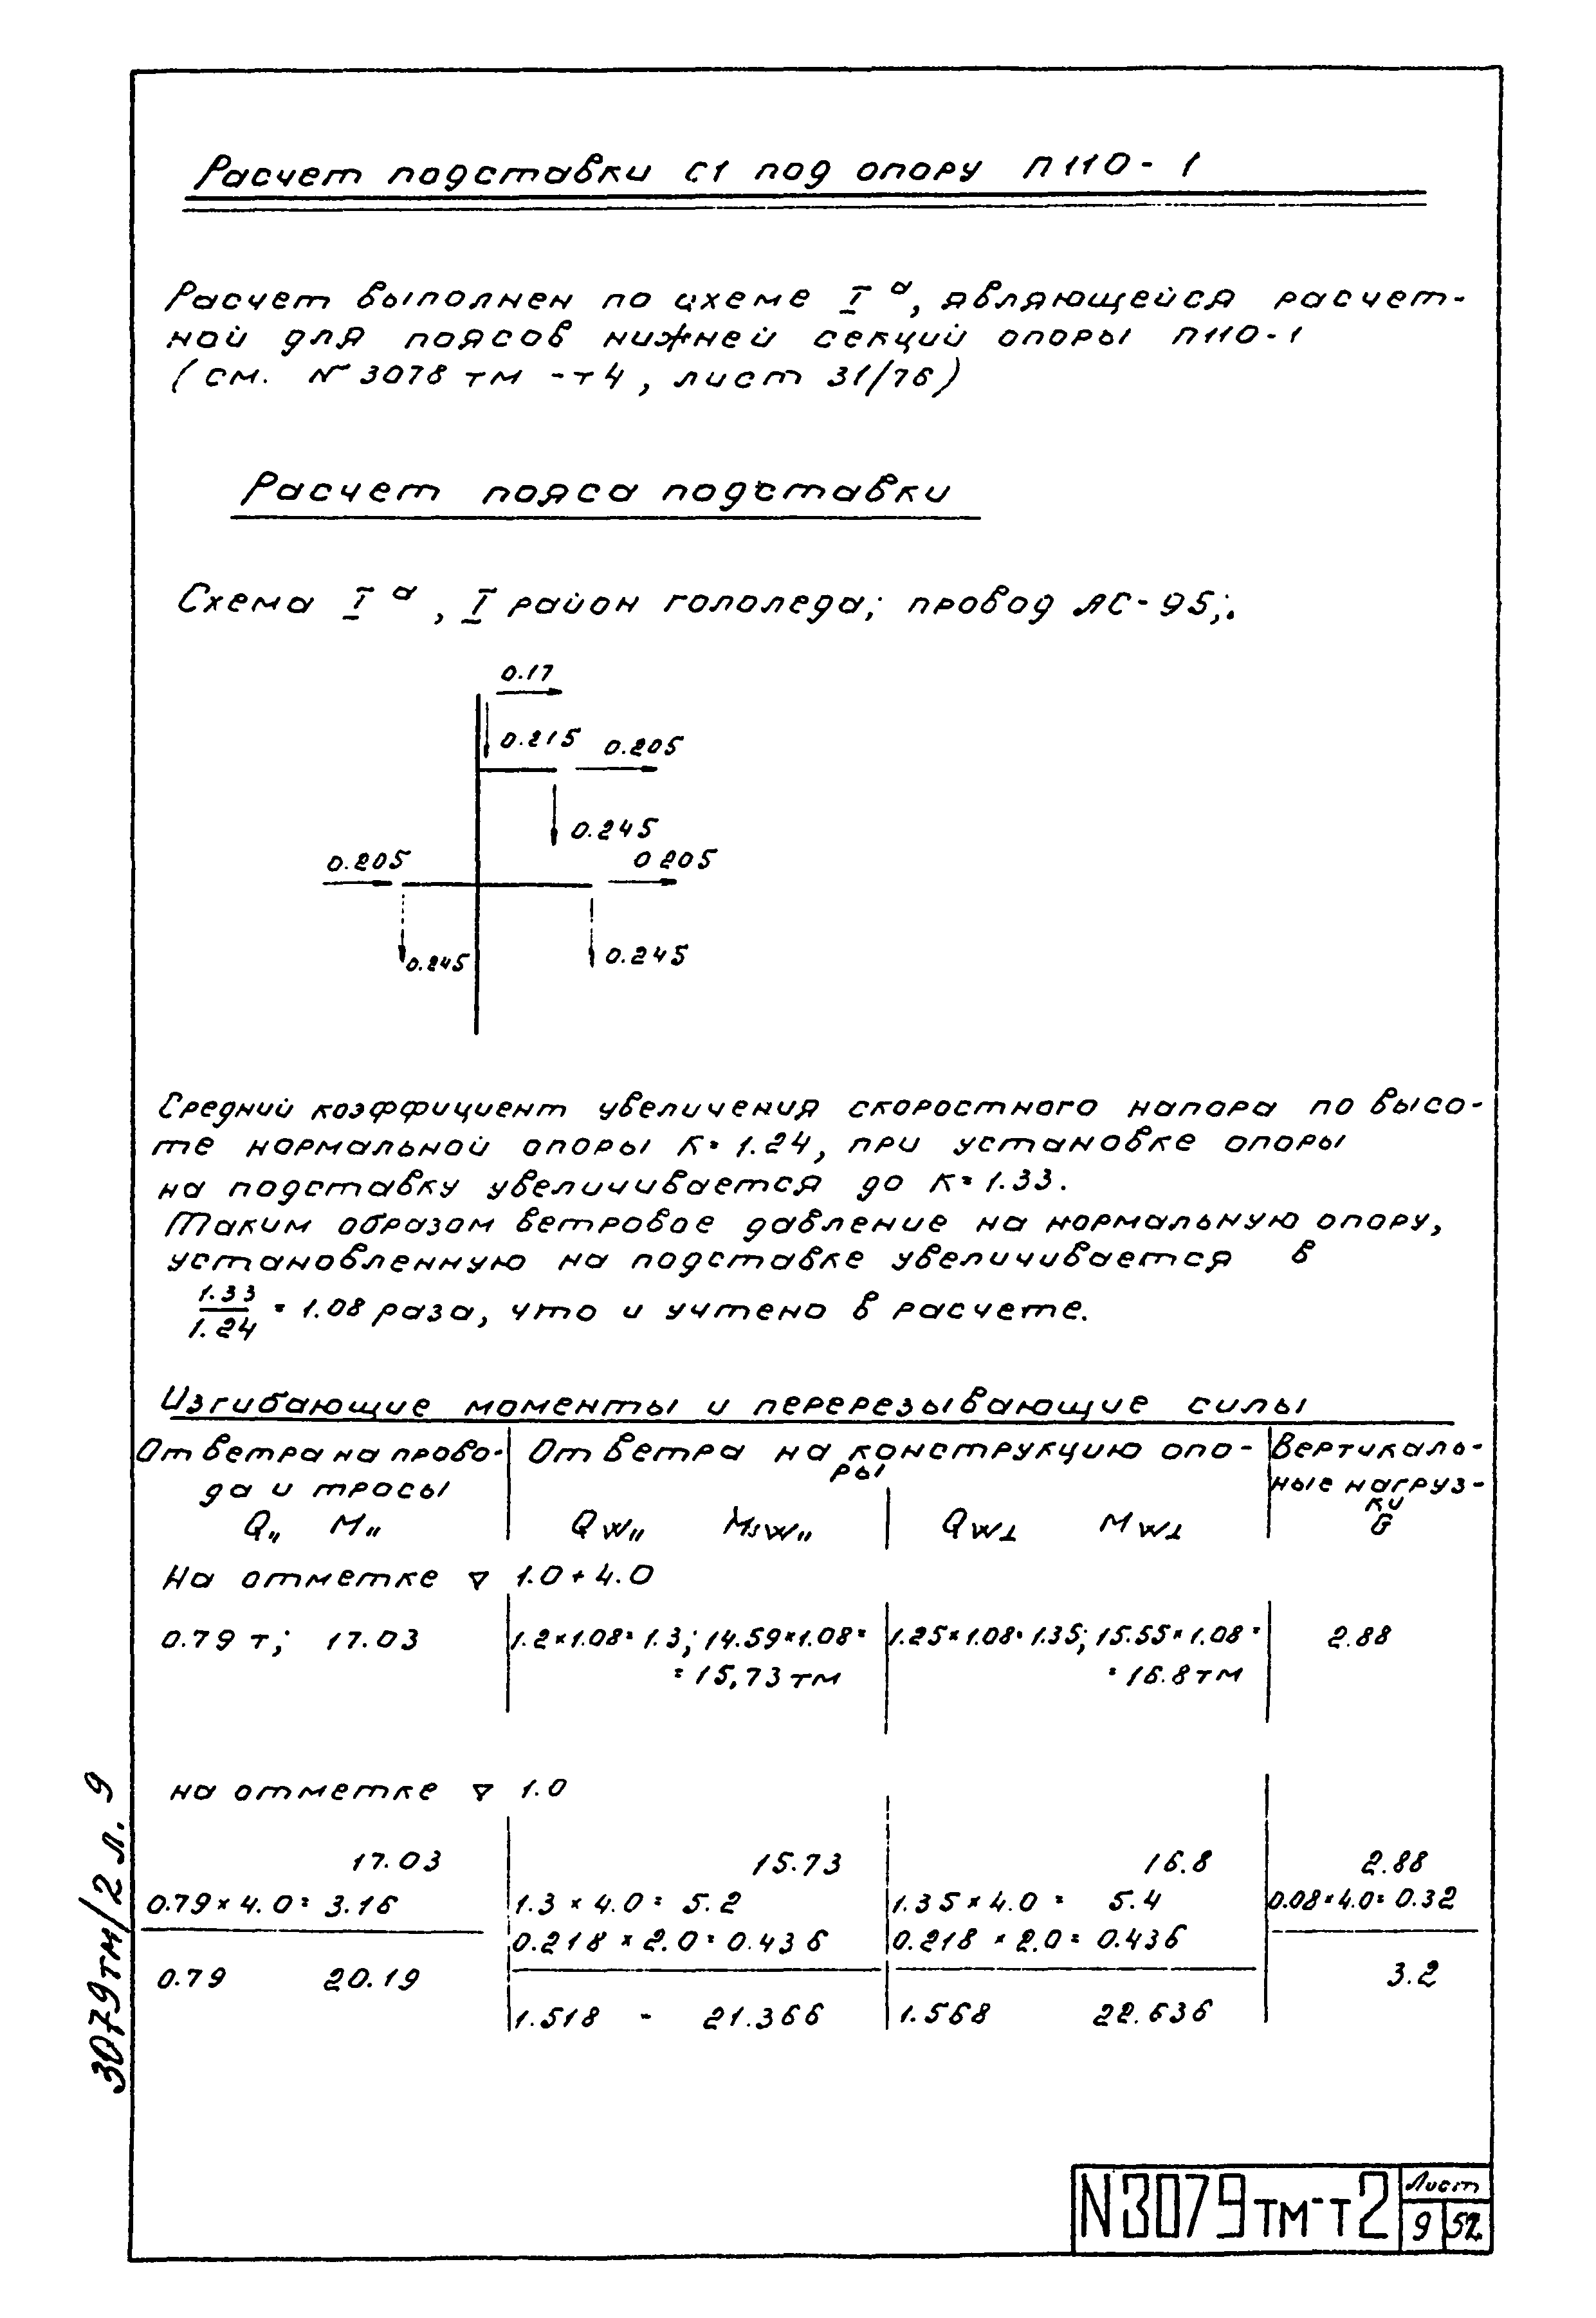 Расчет подставки С1 под опору П110-1
Расчет выполнен по схеме I а, являющейся расчет-
ной для поясов нижней секций опоры П110-1
(см. № 3078 тм -т4, лист 31/76)
Расчет пояса подставки
Схема I а, I район гололеда; провод АС-95;.
0.17
0.215 0.205
0.245
0.205 0 205
0.245 0.245
Средний коэффициент увеличения скоростного напора по высо-
те нормальной опоры К=1.24, при установке опоры
на подставку увеличивается до К=1.33.
Таким образом ветровое давление на нормальную опору,
установленную на подставке увеличивается в
1.33
1.24 = 1.08 раза, что и учтено в расчете.
Изгибающие моменты и перерезывающие силы
От ветра на прово- От ветра на конструкцию опо- Вертикаль-
да и тросы ры ные нагруз-
ки
Q„ M„ QW„ MW„ QW⊥ MW⊥ G
На отметке ▽ 1.0+4.0
0.79 т; 17.03 1.2×1.08=1.3; 14.59×1.08= 1.25×1.08=1.35; 15.55×1.08= 2.88
=15,73 тм =16.8 тм
на отметке ▽ 1.0
17.03 15.73 16.8 2.88
0.79×4.0=3.16 1.3×4.0= 5.2 1.35×4.0= 5.4 0.08×4.0=0.32
0.218×2.0=0.436 0.218×2.0=0.436
0.79 20.19 3.2
1.518 - 21.366 1.568 22.636
3079тм/2 л. 9
N3079тм-т2 Лист
9 52